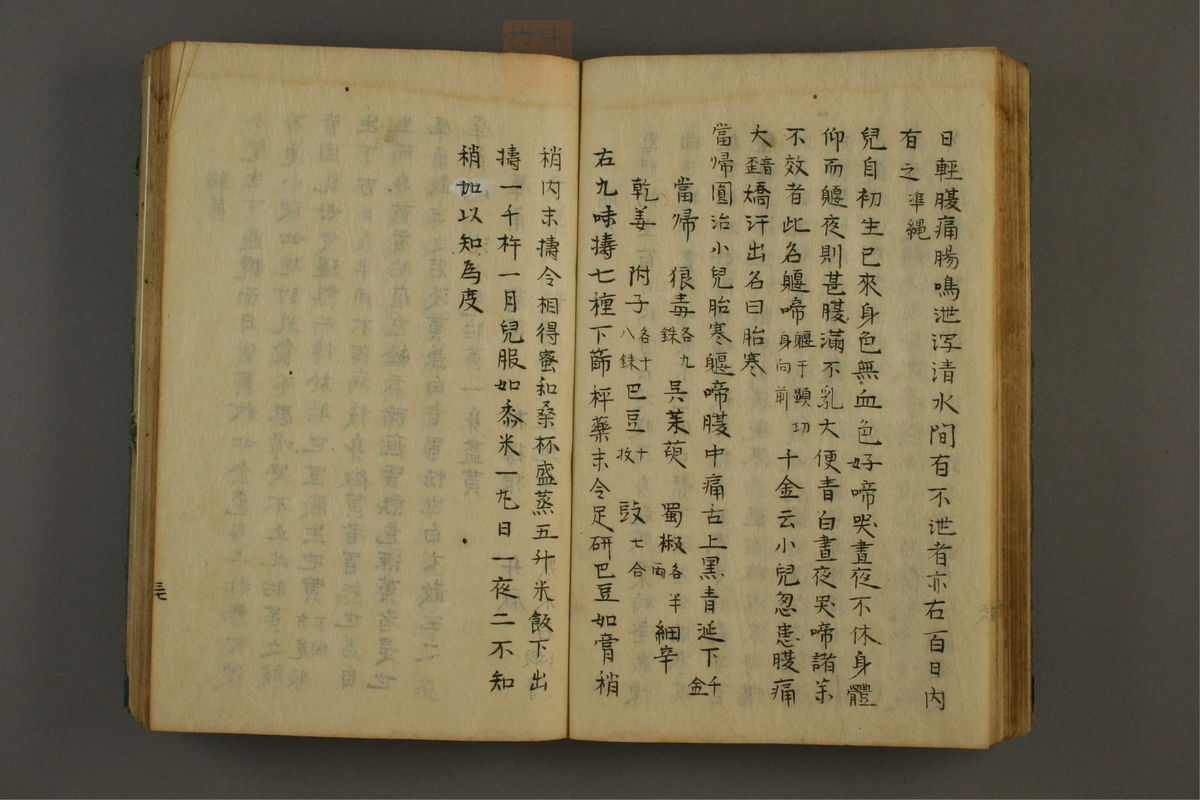 日輕腹痛腸鳴泄泻清水間有不泄者亦右百日內
有之準繩
兒自初生已來身色無血色好啼哭晝夜不休身體
仰而軀夜則甚腹滿不乳大便青白晝夜哭啼諸茶
不效者此名軀啼軀于顕功身向前千金云小兒忽患腹痛
大錯矯汗出名曰胎寒
當帰圓治小兒胎寒軀啼腹中痛古上黑青延下千金
當帰 狼毒各九銖 呉茱萸 蜀椒各半両 細辛
乾姜 附子各十八銖 巴豆十枚 豉七合
右九味擣七種下篩秤藥末令足研巴豆如膏稍
稍內末擣令相得蜜和桑杯盛蒸五升米飯下出
擣一千杵一月兒服如黍米一丸日一夜二不知
稍加以知為度